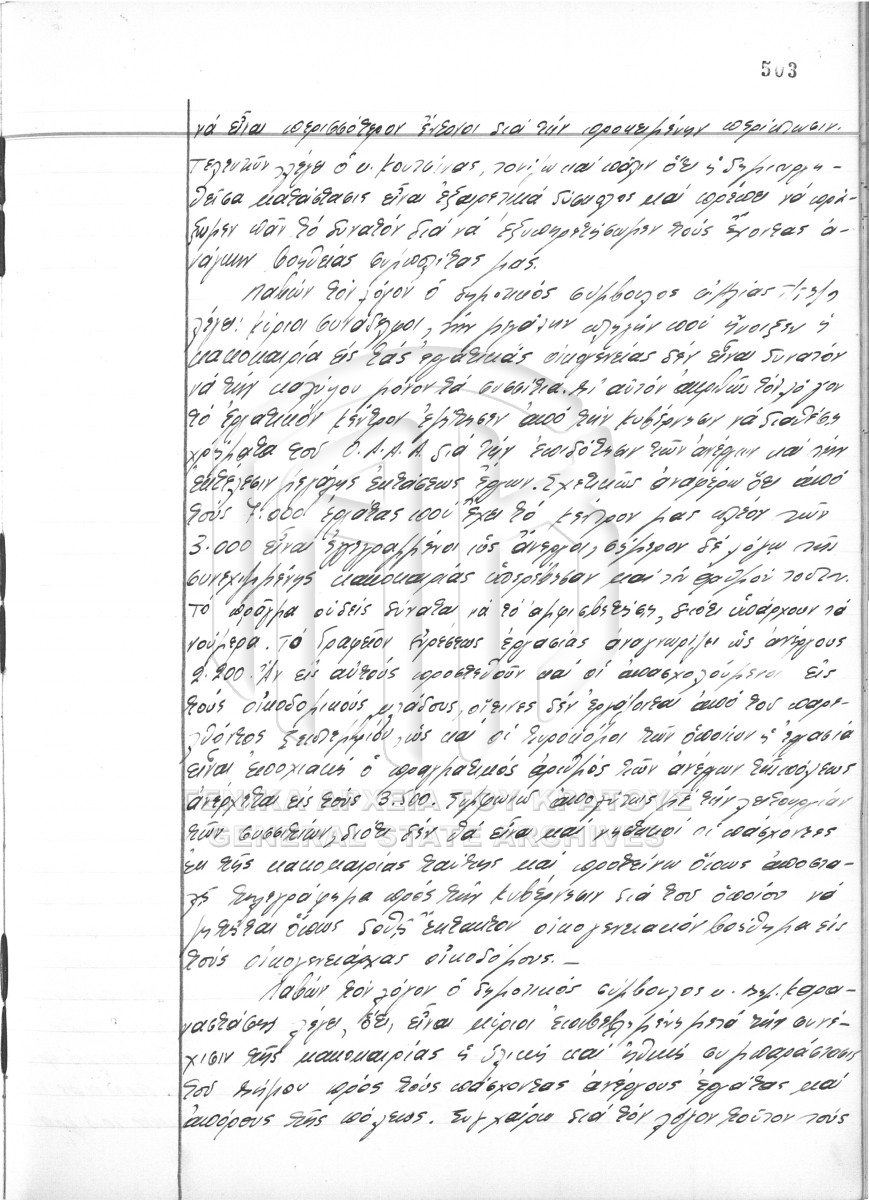 503
νά εἶναι περισσότερον ἔντονοι διά τήν προκειμένην περίπτωσιν.
Τελευτῶν λέγει ὁ κ. Κουτσίνας, τονίζω καί πάλιν ὅτι ἡ δημιουργη-
θεῖσα κατάστασις εἶναι ἐξαιρετικά δύσκολος καί πρέπει νά πρά-
ξωμεν πᾶν τό δυνατόν διά νά ἐξυπηρετήσωμεν τούς ἔχοντας ἀ-
νάγκην βοηθείας συμπολίτας μας.
Λαβών τόν λόγον ὁ δημοτικός σύμβουλος
λέγει: Κύριοι συνάδελφοι, τήν μεγάλην πληγήν πού ἤνοιξεν ἡ
κακοκαιρία εἰς τάς ἐργατικάς οἰκογενείας δέν εἶναι δυνατόν
νά τήν καλύψου μόνον τά συσσίτια. Δι' αὐτόν ἀκριβῶς τόν λόγον
τό ἐργατικόν κέντρον ἐζήτησεν ἀπό τήν κυβέρνησιν νά διαθέσῃ
χρήματα τοῦ Ο.Α.Α.Α διά τήν ἐπιδότησιν τῶν ἀνέργων καί τήν
ἐκτέλεσιν μεγάλης ἐκτάσεως ἔργων. Σχετικῶς ἀναφέρω ὅτι ἀπό
τούς 7.000 ἐργάτας πού ἔχει τό κέντρον μας πλέον τῶν
3.000 εἶναι ἐγγεγραμμένοι ὡς ἄνεργοι, σήμερον δέ λόγω τῆς
συνεχιζομένης κακοκαιρίας ὑπερέβησαν καί τόν ἀριθμόν τοῦτον.
Τό πρᾶγμα οὐδείς δύναται νά τό ἀμφισβητήσῃ, διότι ὑπάρχουν τά
νούμερα. Τό Γραφεῖον Εὑρέσεως ἐργασίας ἀναγνωρίζει ὡς ἀνέργους
2.200. Ἄν εἰς αὐτούς προστεθοῦν καί οἱ ἀπασχολούμενοι εἰς
τούς οἰκοδομικούς κλάδους, οἵτινες δέν ἐργάζονται ἀπό τοῦ παρε-
λθόντος Σεπτεμβρίου, ὡς καί οἱ τυροκόμοι τῶν ὁποίων ἡ ἐργασία
εἶναι ἐποχιακή ὁ πραγματικός ἀριθμός τῶν ἀνέργων τῆς πόλεως
ἀνέρχεται εἰς τούς 3.500. Συμφωνῶ ἀπολύτως μέ τήν λειτουργίαν
τῶν συσσιτίων, διότι δέν θά εἶναι καί νηστικοί οἱ πάσχοντες
ἐκ τῆς κακοκαιρίας ταύτης καί προτείνω ὅπως ἀποστα-
λῇ τηλεγράφημα πρός τήν κυβέρνησιν διά τοῦ ὁποίου νά
ζητῆται ὅπως δοθῇ ἔκτακτον οἰκογενειακόν βοήθημα εἰς
τούς οἰκογενειάρχας οἰκοδόμους. —
Λαβών τόν λόγον ὁ δημοτικός σύμβουλος κ. Δημ. Καρα-
ναστάσης λέγει, ὅτι, εἶναι κύριοι ἐπιβεβλημένη μετά τήν συνέ-
χισιν τῆς κακοκαιρίας ἡ ὑλική καί ἠθική συμπαράστασις
τοῦ Δήμου πρός τούς πάσχοντας ἀνέργους ἐργάτας καί
ἀπόρους τῆς πόλεως. Συγχαίρω διά τόν λόγον τοῦτον τούς
ΓΕΝΙΚΑ ΑΡΧΕΙΑ ΤΟΥ ΚΡΑΤΟΥΣ
GENERAL STATE ARCHIVES